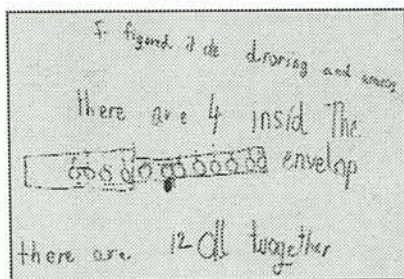 I figured it de droring and wrods
there are 4 insid The
envelop
there are 12 all twogether